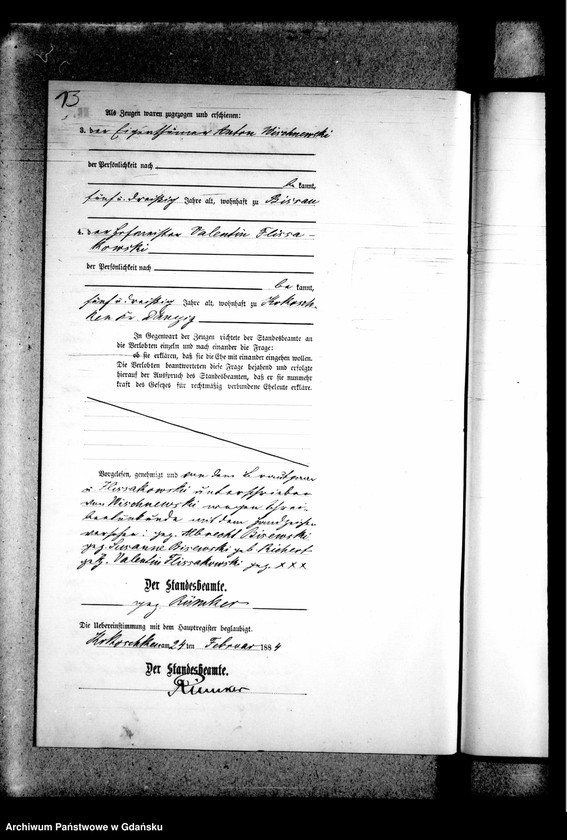 13
Als Zeugen waren zugezogen und erschienen:
3. der Eigenthümer Anton Wischnewski
der Persönlichkeit nach
be kannt,
fünf u. dreißig Jahre alt, wohnhaft zu Bissau
4. der Hofmeister Valentin Flissa-
kowski
der Persönlichkeit nach
be kannt,
fünf u. dreißig Jahre alt, wohnhaft zu Kokosch-
ken Kr. Danzig
In Gegenwart der Zeugen richtete der Standesbeamte an
die Verlobten einzeln und nach einander die Frage:
ob sie erklären, daß sie die Ehe mit einander eingehen wollen.
Die Verlobten beantworteten diese Frage bejahend und erfolgte
hierauf der Ausspruch des Standesbeamten, daß er sie nunmehr
kraft des Gesetzes für rechtmäßig verbundene Eheleute erkläre.
Vorgelesen, genehmigt und von dem Brautpaar
u. Flissakowski unterschrieben
von Wischnewski wegen Schrei-
bensunkunde mit dem Handzeichen
versehen: gez. Albrecht Bisewski
gez. Susanne Bisewski geb. Richert
gez. Valentin Flissakowski gez. xxx
Der Standesbeamte.
gez Rümker
Die Uebereinstimmung mit dem Hauptregister beglaubigt.
Kokoschken am 24 ten Februar 1884
Der Standesbeamte.
Rümker
Archiwum Państwowe w Gdańsku